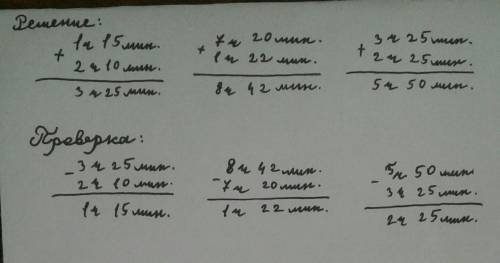 Решение:
+ 1ч 15мин.
2ч 10мин.
3ч 25мин.
+ 7ч 20мин.
1ч 22мин.
8ч 42мин.
+ 3ч 25мин.
2ч 25мин.
5ч 50мин.
Проверка:
- 3ч 25мин.
2ч 10мин.
1ч 15мин.
- 8ч 42мин.
7ч 20мин.
1ч 22мин.
- 5ч 50мин.
3ч 25мин.
2ч 25мин.